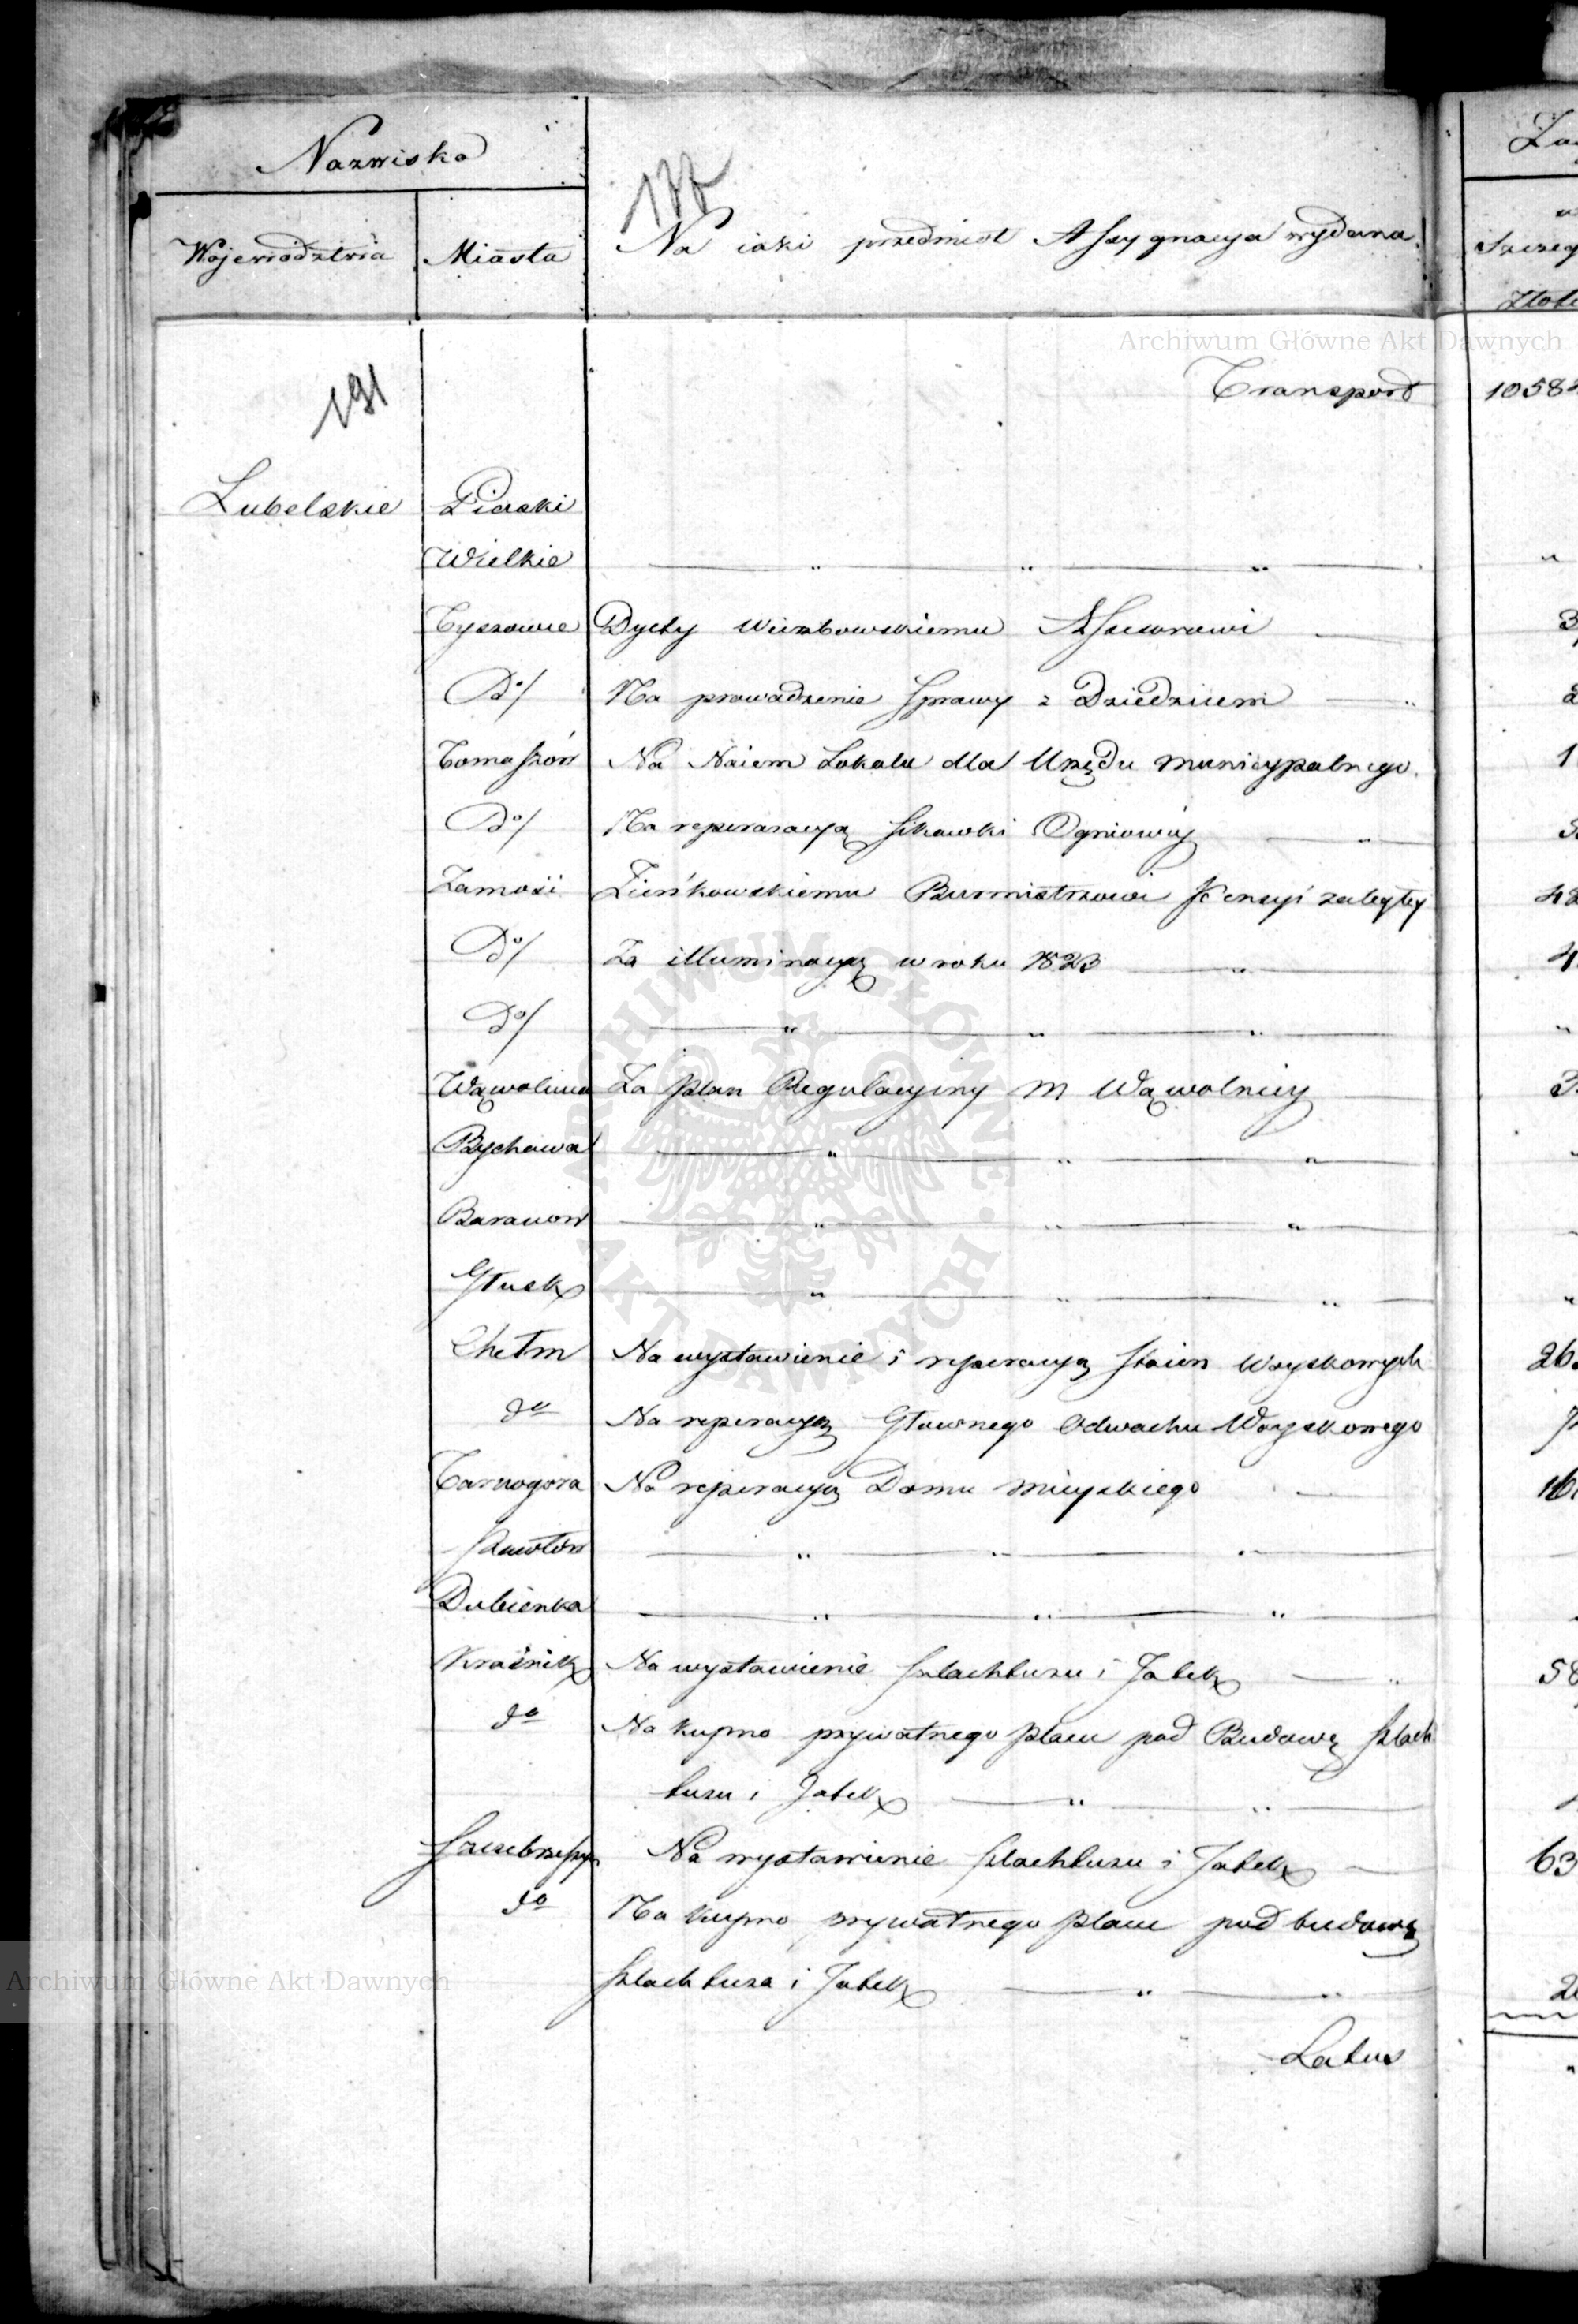 Nazwiska
177
Wojewodztwa Miasta Na iaki przedmiot Assygnacya wydana.
Szczeg
Złote
Archiwum Główne Akt Dawnych
191
Transport 1058
Lubelskie Piaski
Wielkie — " — " — " —
Tyszowce Dyety Wierzbowskiemu Assessorowi — 3
Do/ Na prowadzenie Sprawy z Dziedzicem — " 2
Tomaszów Na Naiem Lokalu dla Urzędu Municypalnego. 1
Do/ Na reperacayą sikawki Ogniowéy — " —
Zamość Zieńkowskiemu Burmistrzowi Pensyi zaległey 42
Do/ Za illuminacyą w roku 1823 — " — 4
Do/ — " — " — " —
Wąwolnica Za plan Regulacyiny M Wąwolnicy — 3
Bychawa — " — " — " —
Baranow — " — " — " —
Głusk — " — " — " —
Chełm Na wystawienie i reperacyą staien Woyskowych 26
do Na reperacyą Głownego Odwachu Woyskowego
Tarnogora Na reperacyą Domu Mieyskiego — 16
Pawłów — " — " — " —
Dubienka — " — " — " —
Kraśnik Na wystawienie szlachtuzu i Jatek — " 58
do Na kupno prywatnego placu pod Budowę szlach
tuzu i Jatek — " — " —
Szczebrzeszyn Na wystawienie szlachtuzu i Jatek — 63
do Na kupno prywatnego placu pod budowę
szlachtuza i Jatek — " — " — 2
Archiwum Główne Akt Dawnych
Latus
ARCHIWUM GŁÓWNE AKT DAWNYCH